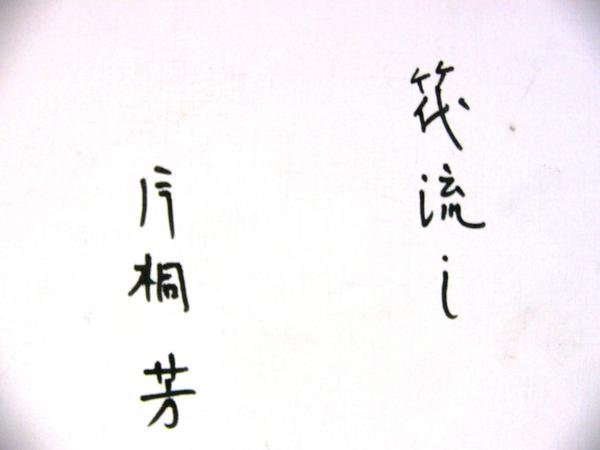 筏流し
片桐芳